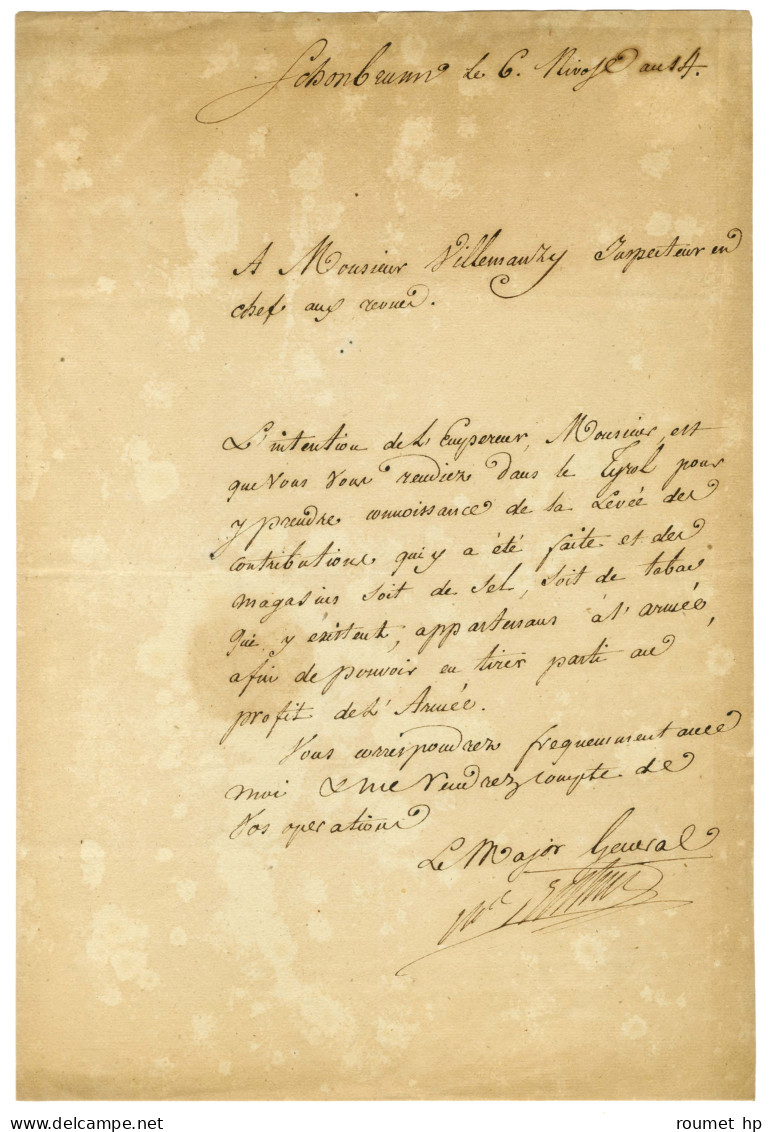 Schonbrunn le 6. Nivose an 14.
A Monsieur Villemanzy Inspecteur en
chef aux revues.
L'intention de l'Empereur, Monsieur, est
que vous vous rendiez dans le Tyrol pour
y prendre connoissance de la Levée des
contributions qui y a été faite et des
magasins soit de Sel, soit de tabac
qui y éxistent, appartenans à l'armée,
afin de pouvoir en tirer parti au
profit de l'Armée.
Vous correspondrez frequemment avec
moi & me rendrez compte de
vos operations
Le Major General
Mal Berthier
roumet hp